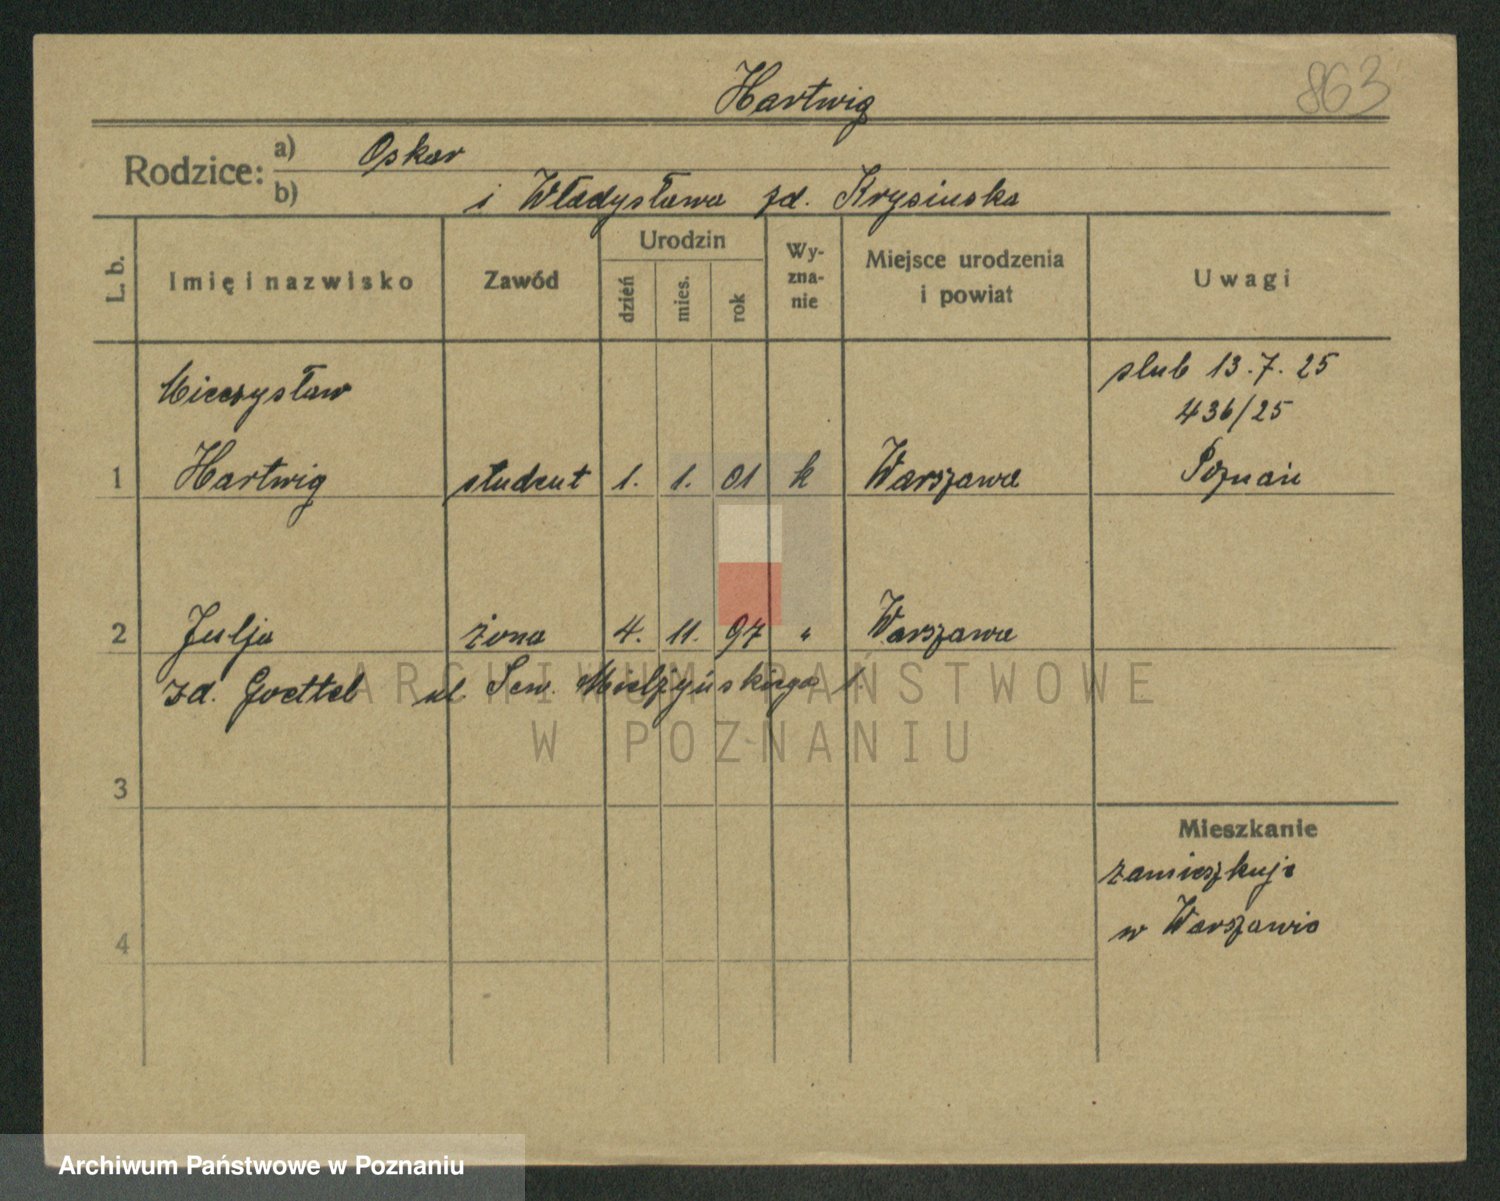 Hartwig
863
Rodzice: a) Oskar
b) i Władysława zd. Krysinska
L. b.
Imię i nazwisko
Zawód
Urodzin
dzień
mies.
rok
Wy-
zna-
nie
Miejsce urodzenia
i powiat
Uwagi
Mieczysław
slub 13.7.25
436/25
1 Hartwig student 1. 1. 01 k Warszawa Poznań
2 Julja żona 4. 11. 97 " Warszawa
zd. Goettel ul Sew. Mielżyńskiego 1.
ARCHIWUM PAŃSTWOWE
W POZNANIU
3
Mieszkanie
zamieszkuje
w Warszawie
4
Archiwum Państwowe w Poznaniu